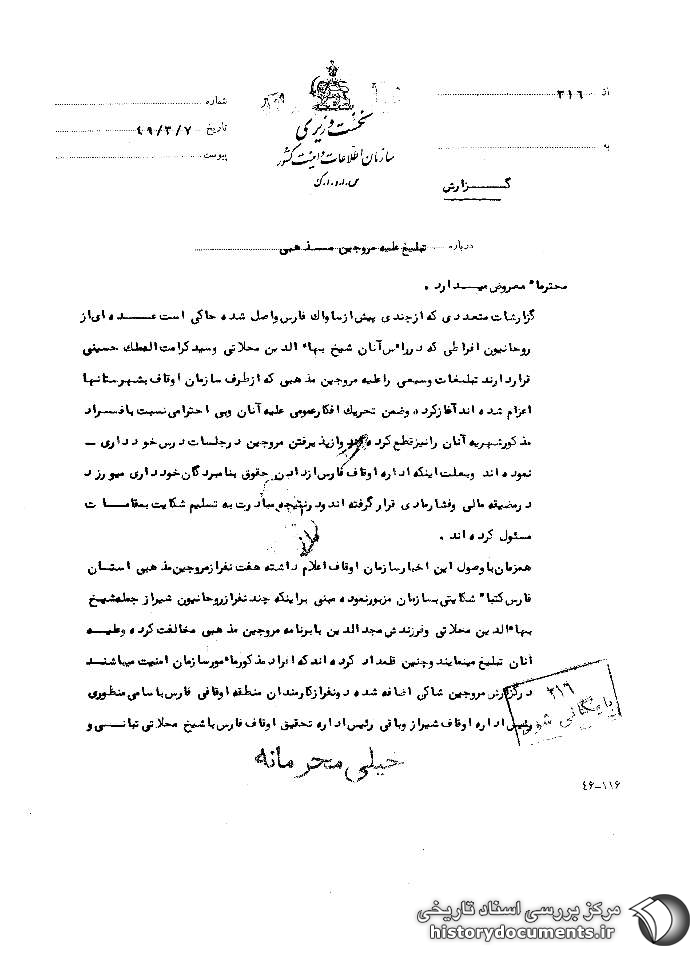 از ۳۱۶
به
نخست وزیری
سازمان اطلاعات و امنیت کشور
س.ا.و.ا.ک
شماره
تاریخ ۴۹/۳/۷
پیوست
گزارش
درباره تبلیغ علیه مروجین مذهبی
محترماً معروض میدارد.
گزارشات متعددی که از چندی پیش از ساواک فارس واصل شده حاکی است عده ای از
روحانیون افراطی که در رأس آنان شیخ بهاء الدین محلاتی و سید کرامت الملک حسینی
قرار دارند تبلیغات وسیعی را علیه مروجین مذهبی که از طرف سازمان اوقاف بشهرستانها
اعزام شده اند آغاز کرده و ضمن تحریک افکار عمومی علیه آنان و بی احترامی نسبت بافراد
مذکور شهریه آنان را نیز قطع کرده و از پذیرفتن مروجین در جلسات درس خودداری -
نموده اند وبعلت اینکه اداره اوقاف فارس از دادن حقوق بنامبردگان خودداری میورزد
در مضیقه مالی وفشار مادی قرار گرفته اند ودر نتیجه مبادرت به تسلیم شکایت بمقامات
مسئول کرده اند.
همزمان با وصول این اخبار سازمان اوقاف اعلام داشته هفت نفر از مروجین مذهبی استان
فارس کتباً شکایتی بسازمان مزبور نموده مبنی براینکه چند نفر از روحانیون شیراز جمله شیخ
بهاءالدین محلاتی وفرزندش مجدالدین با برنامه مروجین مذهبی مخالفت کرده وعلیه
آنان تبلیغ مینمایند وچنین قلمداد کرده اند که افراد مذکور مأمور سازمان امنیت میباشند
در گزارش مروجین شاکی اضافه شده دونفر از کارمندان منطقه اوقافی فارس باسامی منظوری
رئیس اداره اوقاف شیراز وباقی رئیس اداره تحقیق اوقاف فارس باشیخ محلاتی تبانی و
۳۱۶
بایگانی شود
خیلی محرمانه
۴۶-۱۱۶
مرکز بررسی اسناد تاریخی
historydocuments.ir